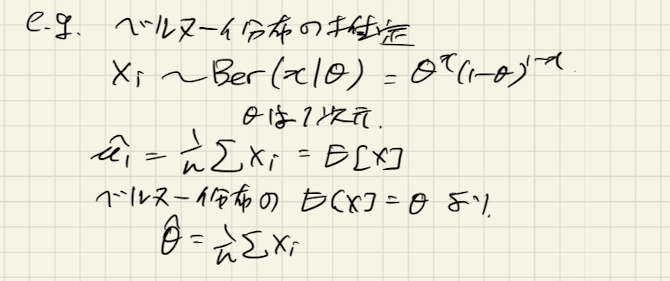 e.g. ベルヌーイ分布の推定
Xi ~ Ber(x|θ) = θ^x(1-θ)^{1-x}
θは1次元.
û₁ = 1/n Σ Xi = E[X]
ベルヌーイ分布の E[X] = θ より
θ̂ = 1/n Σ Xi